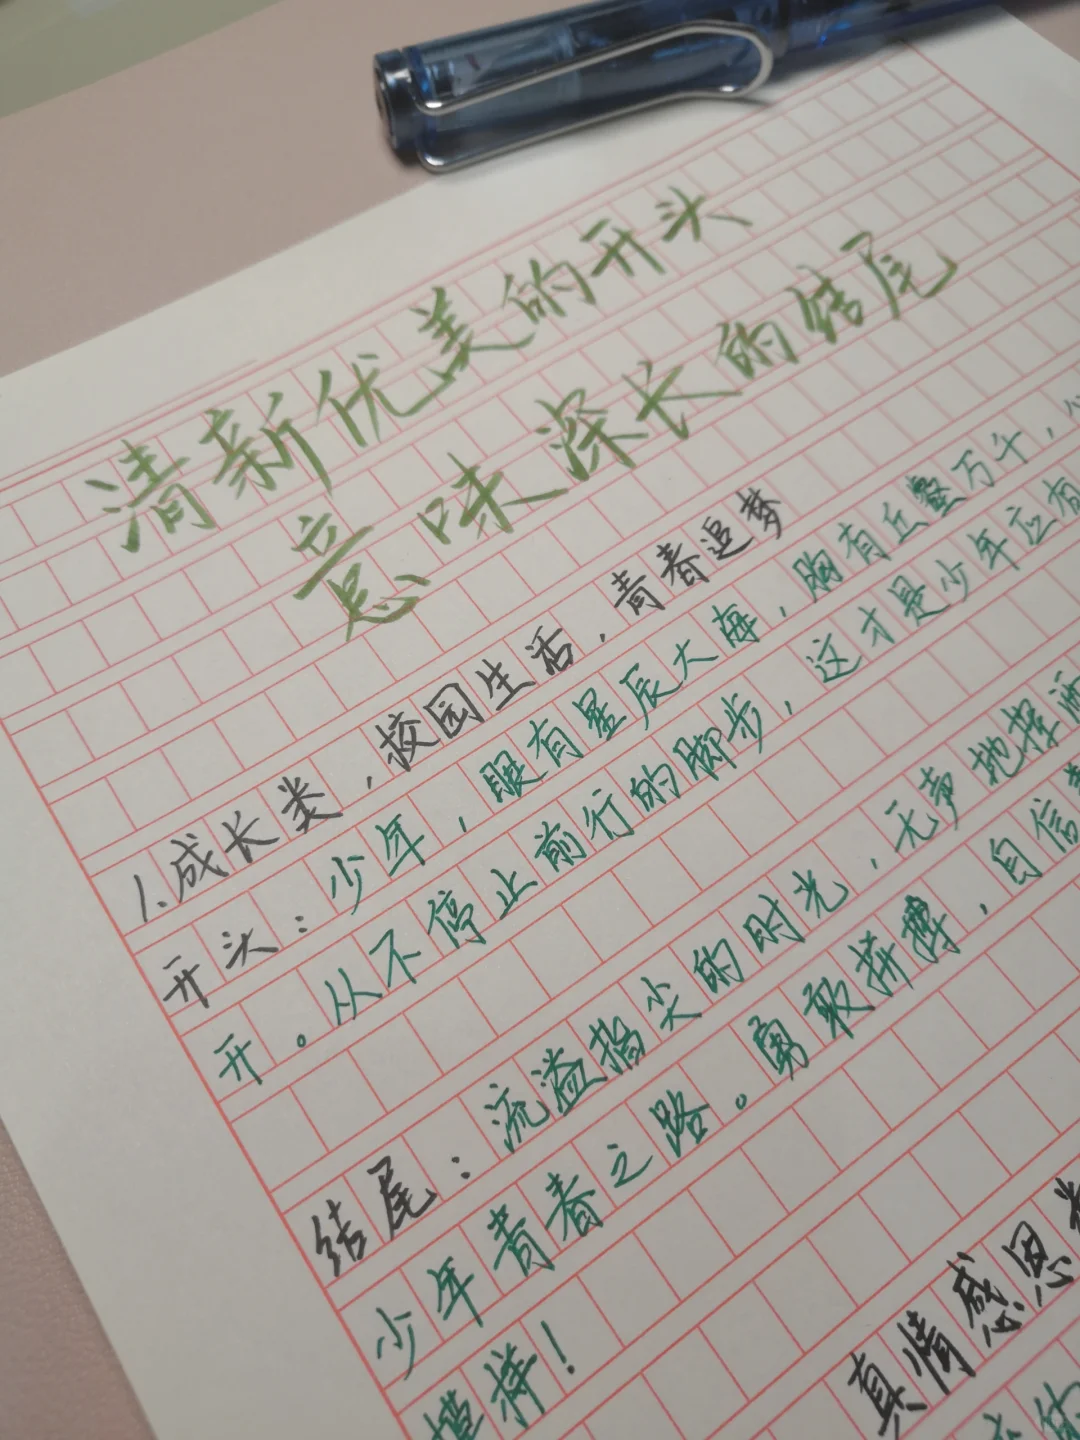 清新优美的开头
意味深长的结尾
1.成长类，校园生活，青春追梦
开头：少年，眼有星辰大海，胸有丘壑万千，心
开。从不停止前行的脚步，这才是少年应有
结尾：流溢指尖的时光，无声地挥洒
少年青春之路。勇敢拼搏，自信
模样！
真情感恩类